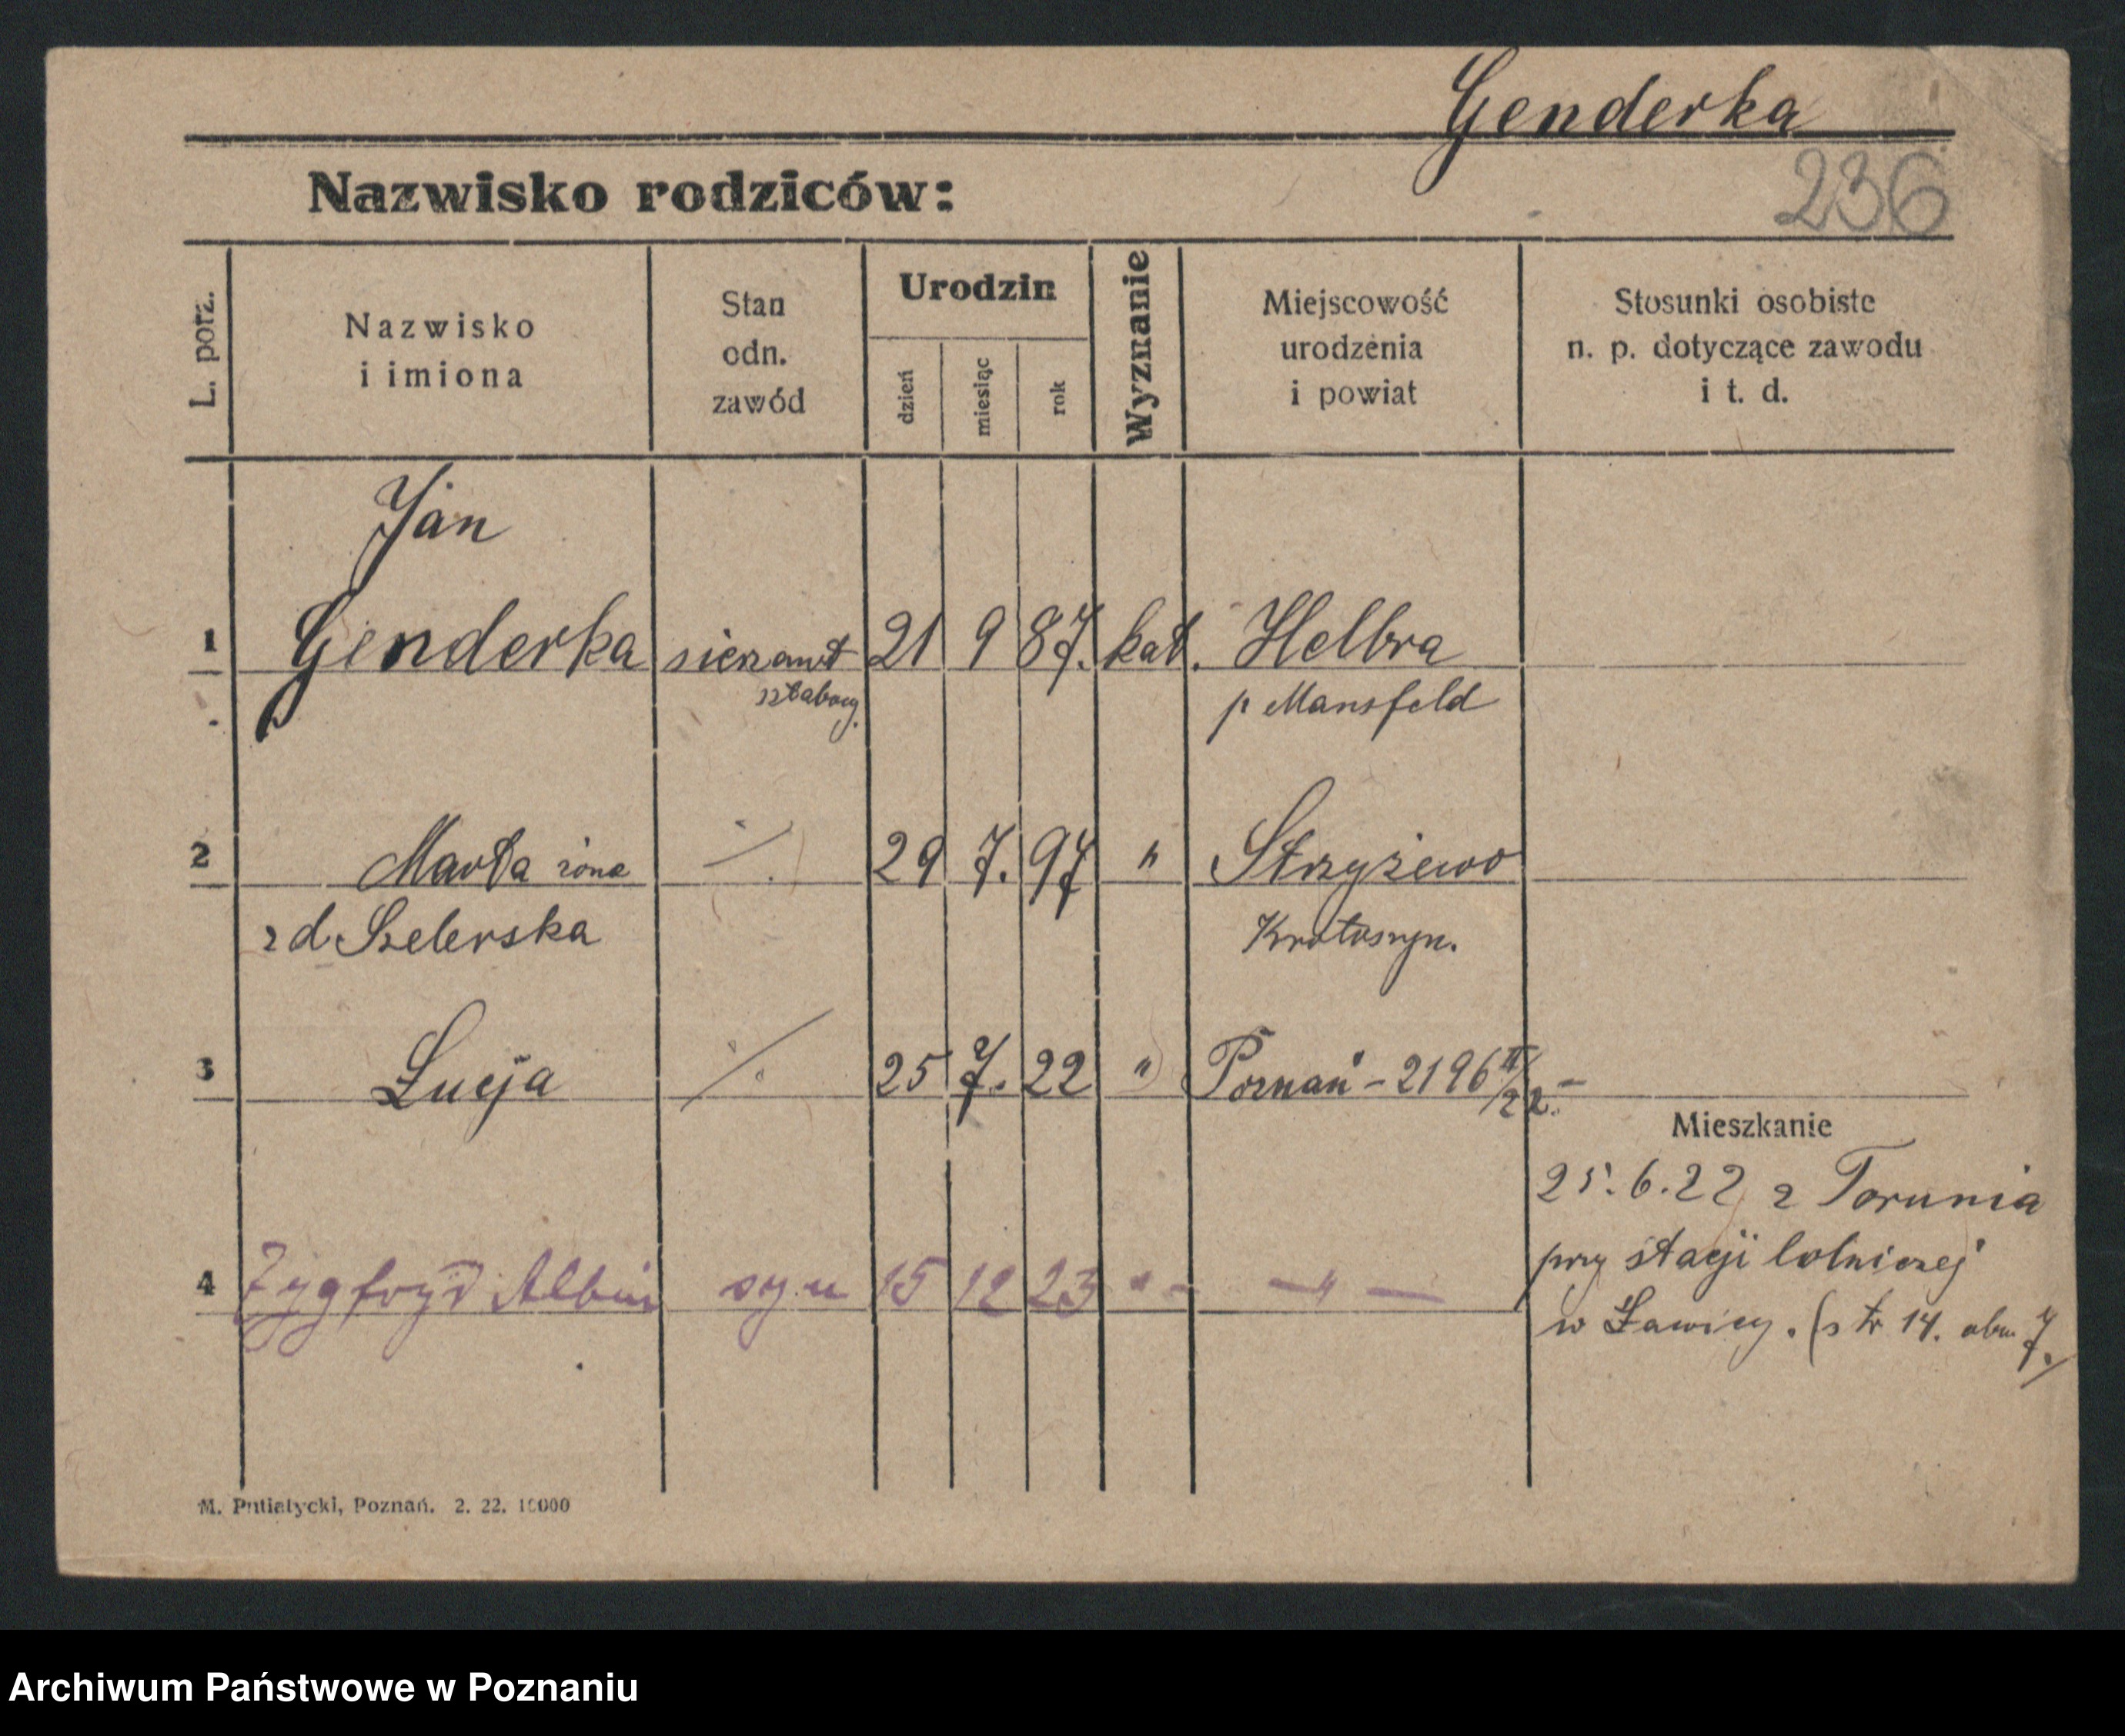 Genderka
236
Nazwisko rodziców:
L. porz.
Nazwisko
i imiona
Stan
odn.
zawód
Urodzin
dzień
miesiąc
rok
Wyznanie
Miejscowość
urodzenia
i powiat
Stosunki osobiste
n. p. dotyczące zawodu
i t. d.
Jan
1 Genderka sierzant 21 9 87. kat. Helbra
sztabowy. p Mansfeld
2 Marta żona ./. 29 7. 97 " Strzyżewo
z d. Szelerska Krotoszyn.
3 Łucja ./. 25 7. 22 " Poznań - 2196 II/22.-
Mieszkanie
25.6.22 z Torunia
przy stacji lotniczej
w Ławicy. (str 14. obw 7.
4 Zygfryd Albin syn 15 12 23 " - - " -
M. Putiatycki, Poznań. 2. 22. 10000
Archiwum Państwowe w Poznaniu